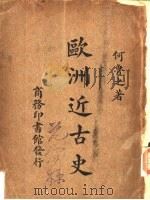 何魯之著
歐洲近古史
商務印書館發行